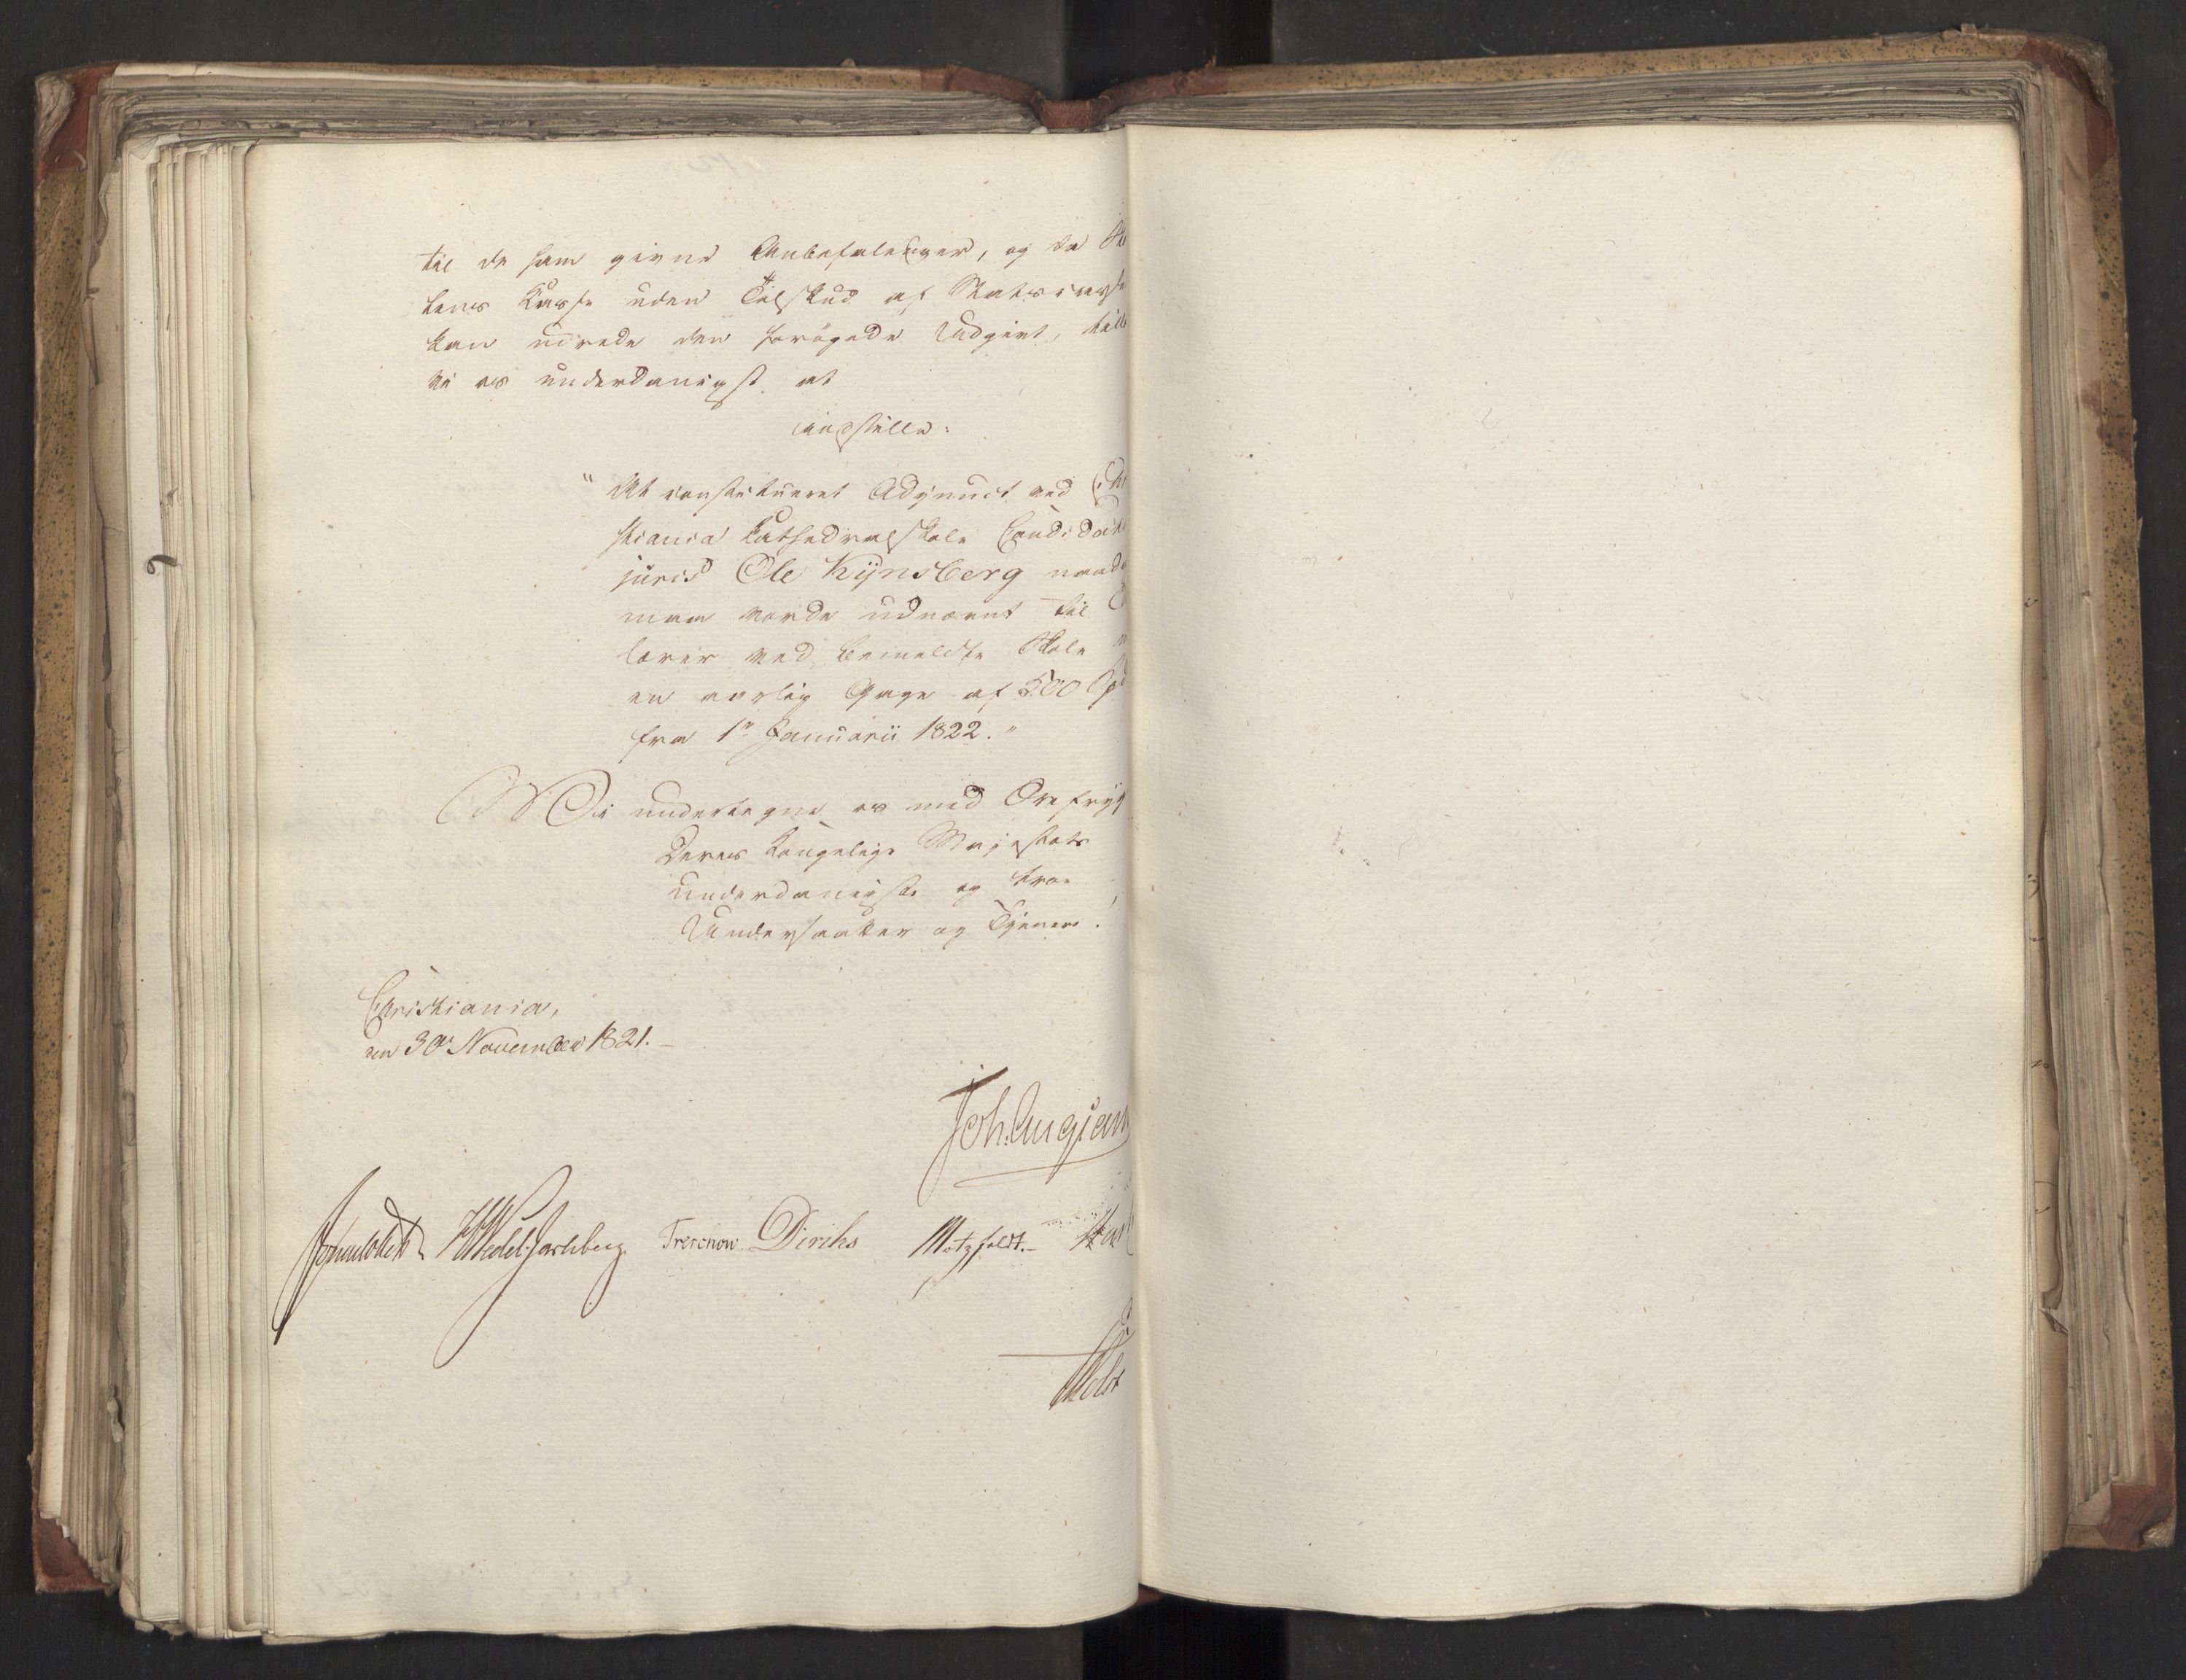 til de ham givne Anbefalinger, og da
lens Kasse uden Tilskud af Statscasse
kan udrede den forøgede Udgivt,
vi os underdanigst at
indstille:
"At constitueret Adjunct ved Chr
stiania Kathedralskole Candidat
juris Ole Kÿnsberg naad
maa vorde udnævnt til
lærer ved bemeldte Skole
en aarlig Gage af 500 Spd
fra 1ste Januarii 1822."
Vi undertegne os med Ærefrygt
Deres Kongelige Majestæts
underdanigste og troe
Undersaatter og Tjenere!
Christiania,
den 30te November 1821.
Joh: Aug San
Sommerhielm HWedel-Jarlsberg. Treschow Diriks Motzfeldt.
Holst